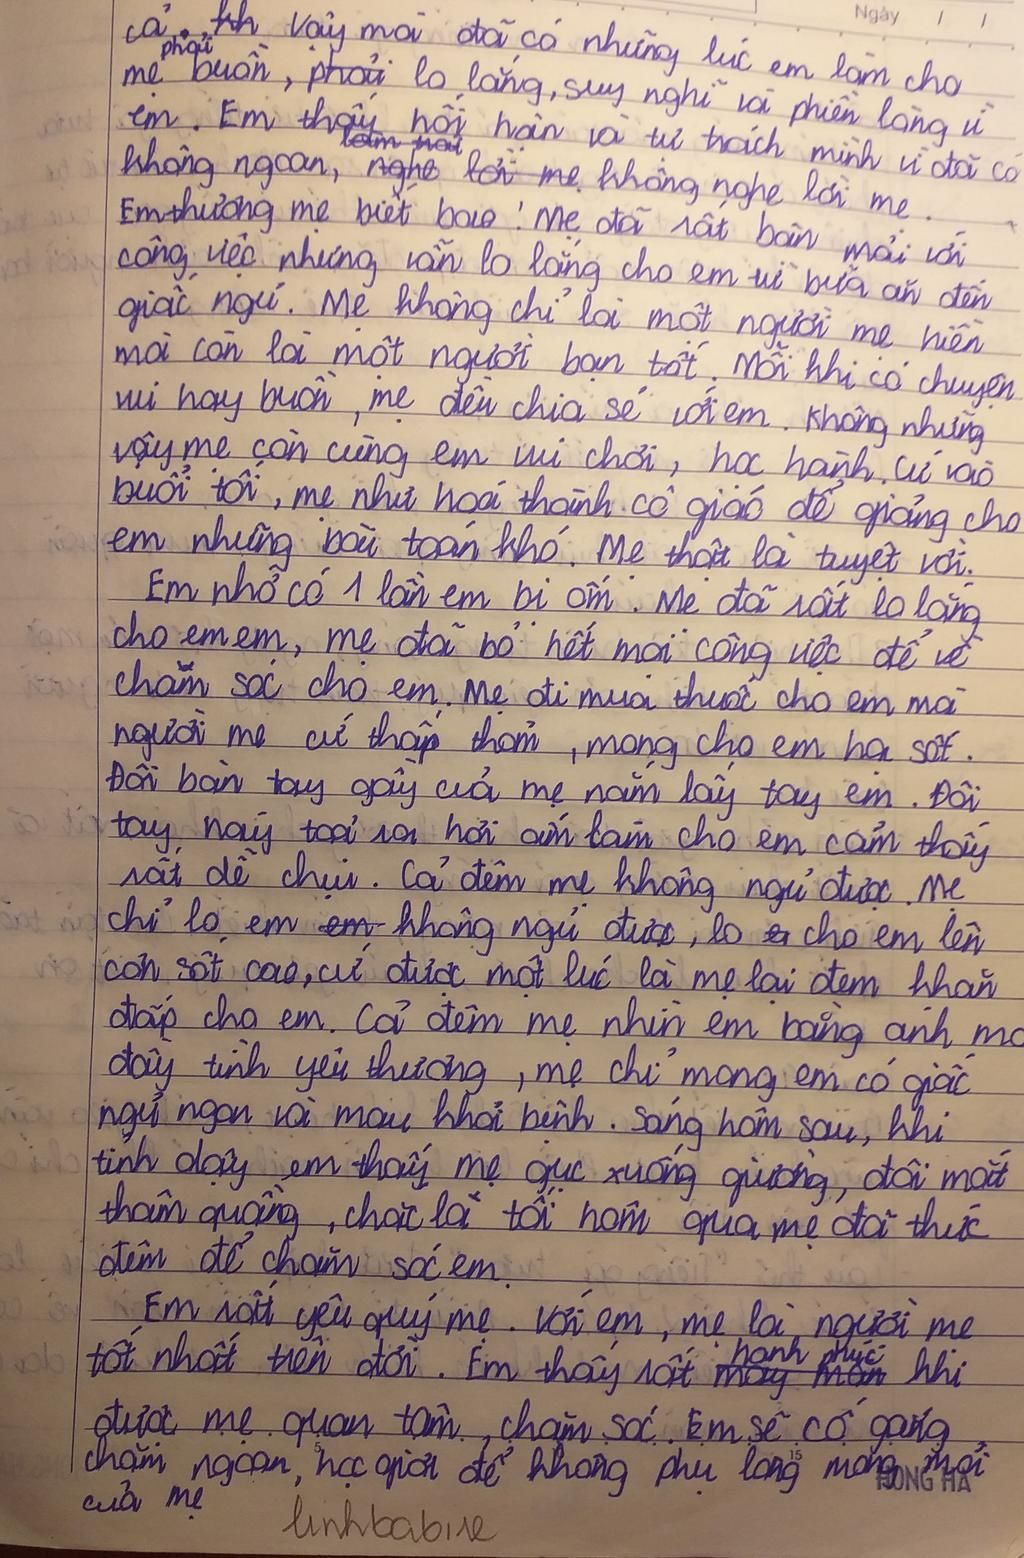 Ngày / /
cả. Vậy mà đã có những lúc em làm cho
mẹ phải buồn, phải lo lắng, suy nghĩ và phiền lòng vì
em. Em thấy hối hận và tự trách mình vì đã có
không ngoan, làm trái nghe lời mẹ không nghe lời mẹ.
Em thương mẹ biết bao! Mẹ đã rất bận mải với
công việc nhưng vẫn lo lắng cho em từ bữa ăn đến
giấc ngủ. Mẹ không chỉ là một người mẹ hiền
mà còn là một người bạn tốt. Mỗi khi có chuyện
vui hay buồn, mẹ đều chia sẻ với em. Không những
vậy mẹ còn cùng em vui chơi, học hành. Cứ vào
buổi tối, mẹ như hoá thành cô giáo để giảng cho
em những bài toán khó. Mẹ thật là tuyệt vời.
Em nhớ có 1 lần em bị ốm. Mẹ đã rất lo lắng
cho em em, mẹ đã bỏ hết mọi công việc để về
chăm sóc cho em. Mẹ đi mua thuốc cho em mà
người mẹ cứ thấp thỏm, mong cho em hạ sốt.
Đôi bàn tay gầy của mẹ nắm lấy tay em. Đôi
tay này toả ra hơi ấm làm cho em cảm thấy
rất dễ chịu. Cả đêm mẹ không ngủ được. Mẹ
chỉ lo em em không ngủ được, lo cho em lên
cơn sốt cao, cứ được một lúc là mẹ lại đem khăn
đắp cho em. Cả đêm mẹ nhìn em bằng ánh mắ
đầy tình yêu thương, mẹ chỉ mong em có giấc
ngủ ngon và mau khỏi bệnh. Sáng hôm sau, khi
tỉnh dậy em thấy mẹ gục xuống giường, đôi mắt
thâm quầng, chắc là tối hôm qua mẹ đã thức
đêm để chăm sóc em.
Em rất yêu quý mẹ. Với em, mẹ là người mẹ
tốt nhất trên đời. Em thấy rất hạnh phúc may mắn khi
được mẹ quan tâm, chăm sóc. Em sẽ cố gắng
chăm ngoan, học giỏi để không phụ lòng mong mỏi
của mẹ
HONG HA
linhbabire